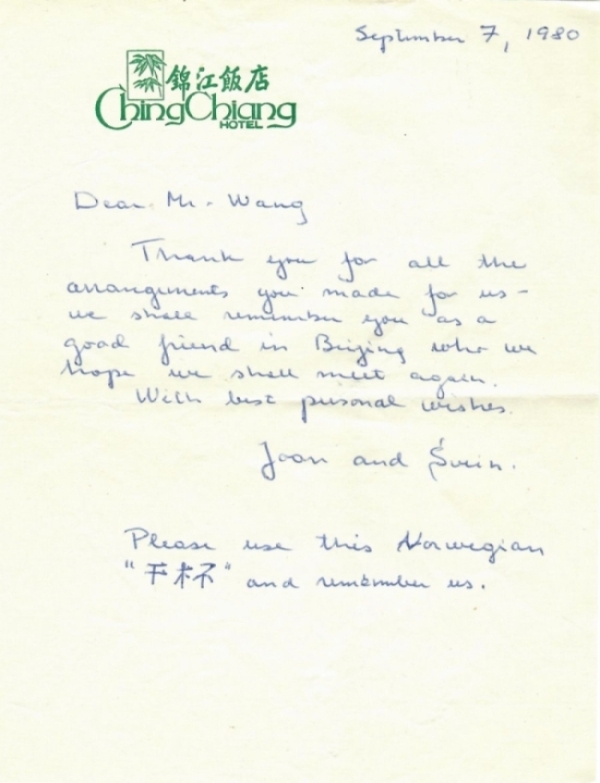 September 7, 1980
錦江飯店
ChingChiang
HOTEL
Dear Mr. Wang
Thank you for all the
arrangements you made for us -
we shall remember you as a
good friend in Beijing who we
hope we shall meet again.
With best personal wishes.
Joan and Svein.
Please use this Norwegian
"干杯" and remember us.